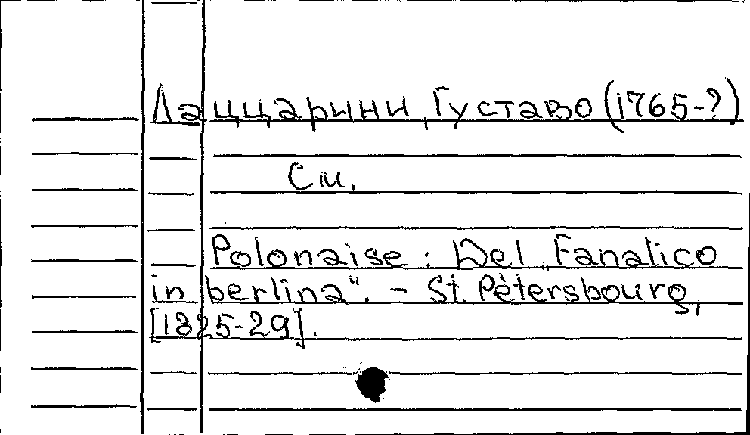 Лаццарини, Густаво (1765-?)
См.
Polonaise: Del „Fanatico
in berlina“. - St. Pétersbourg,
[1825-29].